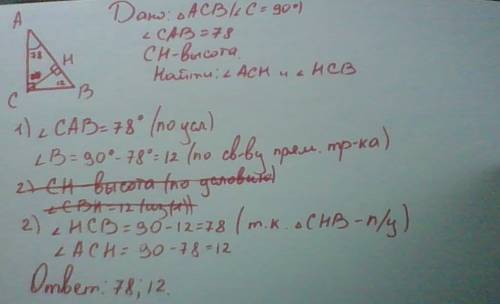 Дано: △ACB (∠C = 90°)
∠CAB = 78
CH - высота.
Найти: ∠ACH и ∠HCB
A
78
H
12
C
B
1) ∠CAB = 78° (по усл)
∠B = 90° - 78° = 12 (по св-ву прям. тр-ка)
2) CH - высота (по условию)
∠CBH = 12 (из(1))
2) ∠HCB = 90 - 12 = 78 (т.к. △CHB - п/у)
∠ACH = 90 - 78 = 12
Ответ: 78; 12.